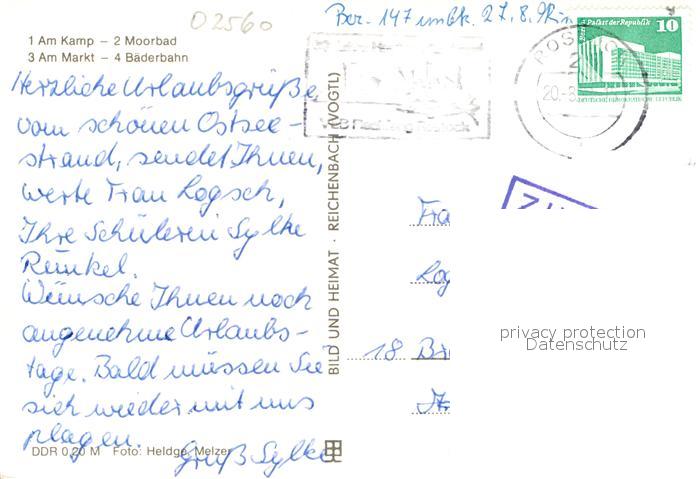 02560
1 Am Kamp – 2 Moorbad
3 Am Markt – 4 Bäderbahn
Herzliche Urlaubsgrüße
vom schönen Ostsee-
strand, sendet Ihnen,
werte Frau Logsch,
Ihre Schülerin Sylke
Runkel.
Wünsche Ihnen noch
angenehme Urlaubs-
tage. Bald müssen Sie
sich wieder mit uns
plagen.
Gruß Sylke
DDR 0,20 M Foto: Heldge, Melzer
BILD UND HEIMAT · REICHENBACH (VOGTL)
27. 8.
Palast der Republik 10
DEUTSCHE DEMOKRATISCHE REPUBLIK
20.-8.
Fra
Log
18 B
privacy protection
Datenschutz